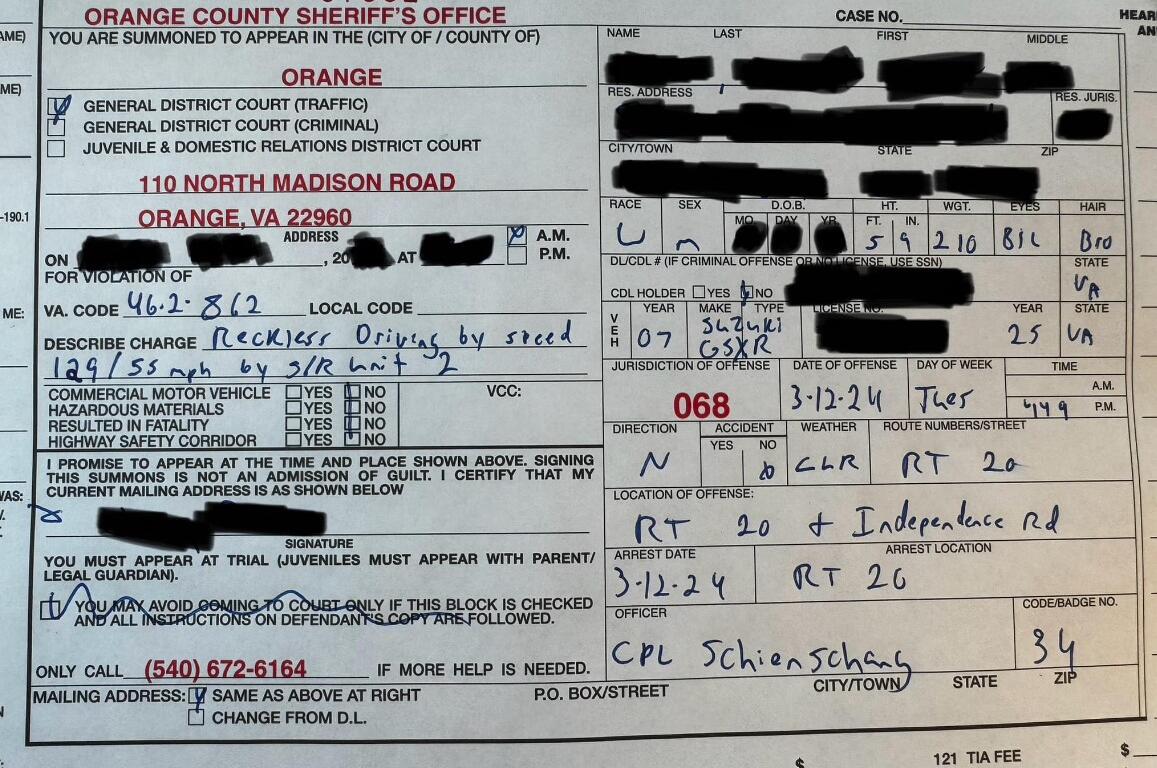 ORANGE COUNTY SHERIFF'S OFFICE
YOU ARE SUMMONED TO APPEAR IN THE (CITY OF / COUNTY OF)
ORANGE
GENERAL DISTRICT COURT (TRAFFIC)
GENERAL DISTRICT COURT (CRIMINAL)
JUVENILE & DOMESTIC RELATIONS DISTRICT COURT
110 NORTH MADISON ROAD
ORANGE, VA 22960
ADDRESS
ON , 20 AT A.M.
P.M.
FOR VIOLATION OF
VA. CODE 46.2-862 LOCAL CODE
DESCRIBE CHARGE Reckless Driving by speed
129/55 mph by S/R unit 2
COMMERCIAL MOTOR VEHICLE YES NO VCC:
HAZARDOUS MATERIALS YES NO
RESULTED IN FATALITY YES NO
HIGHWAY SAFETY CORRIDOR YES NO
I PROMISE TO APPEAR AT THE TIME AND PLACE SHOWN ABOVE. SIGNING
THIS SUMMONS IS NOT AN ADMISSION OF GUILT. I CERTIFY THAT MY
CURRENT MAILING ADDRESS IS AS SHOWN BELOW
SIGNATURE
YOU MUST APPEAR AT TRIAL (JUVENILES MUST APPEAR WITH PARENT/
LEGAL GUARDIAN).
YOU MAY AVOID COMING TO COURT ONLY IF THIS BLOCK IS CHECKED
AND ALL INSTRUCTIONS ON DEFENDANT'S COPY ARE FOLLOWED.
ONLY CALL (540) 672-6164 IF MORE HELP IS NEEDED.
MAILING ADDRESS: SAME AS ABOVE AT RIGHT P.O. BOX/STREET CITY/TOWN STATE ZIP
CHANGE FROM D.L.
CASE NO.
NAME LAST FIRST MIDDLE
RES. ADDRESS RES. JURIS.
CITY/TOWN STATE ZIP
RACE SEX D.O.B. HT. WGT. EYES HAIR
MO. DAY YR. FT. IN.
U m 5 9 210 Blc Bro
DL/CDL # (IF CRIMINAL OFFENSE OR NO LICENSE, USE SSN) STATE
CDL HOLDER YES NO VA
VEH YEAR MAKE TYPE LICENSE NO. YEAR STATE
07 Suzuki GSXR 25 VA
JURISDICTION OF OFFENSE DATE OF OFFENSE DAY OF WEEK TIME
068 3-12-24 Tues 449 A.M.
P.M.
DIRECTION ACCIDENT WEATHER ROUTE NUMBERS/STREET
YES NO
N CLR RT 20
LOCATION OF OFFENSE:
RT 20 + Independence Rd
ARREST DATE ARREST LOCATION
3-12-24 RT 20
OFFICER CODE/BADGE NO.
CPL Schienschang 34
121 TIA FEE $
$
AME)
ME)
-190.1
ME:
WAS:
HEAR
AN